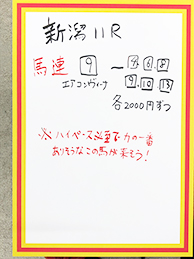 新潟11R
馬連 9 － 4.6.8
9.10.13
エアコンヴィーナ
各2000円ずつ
※ハイペース必至で力の一番
ありそうなこの馬が来そう！